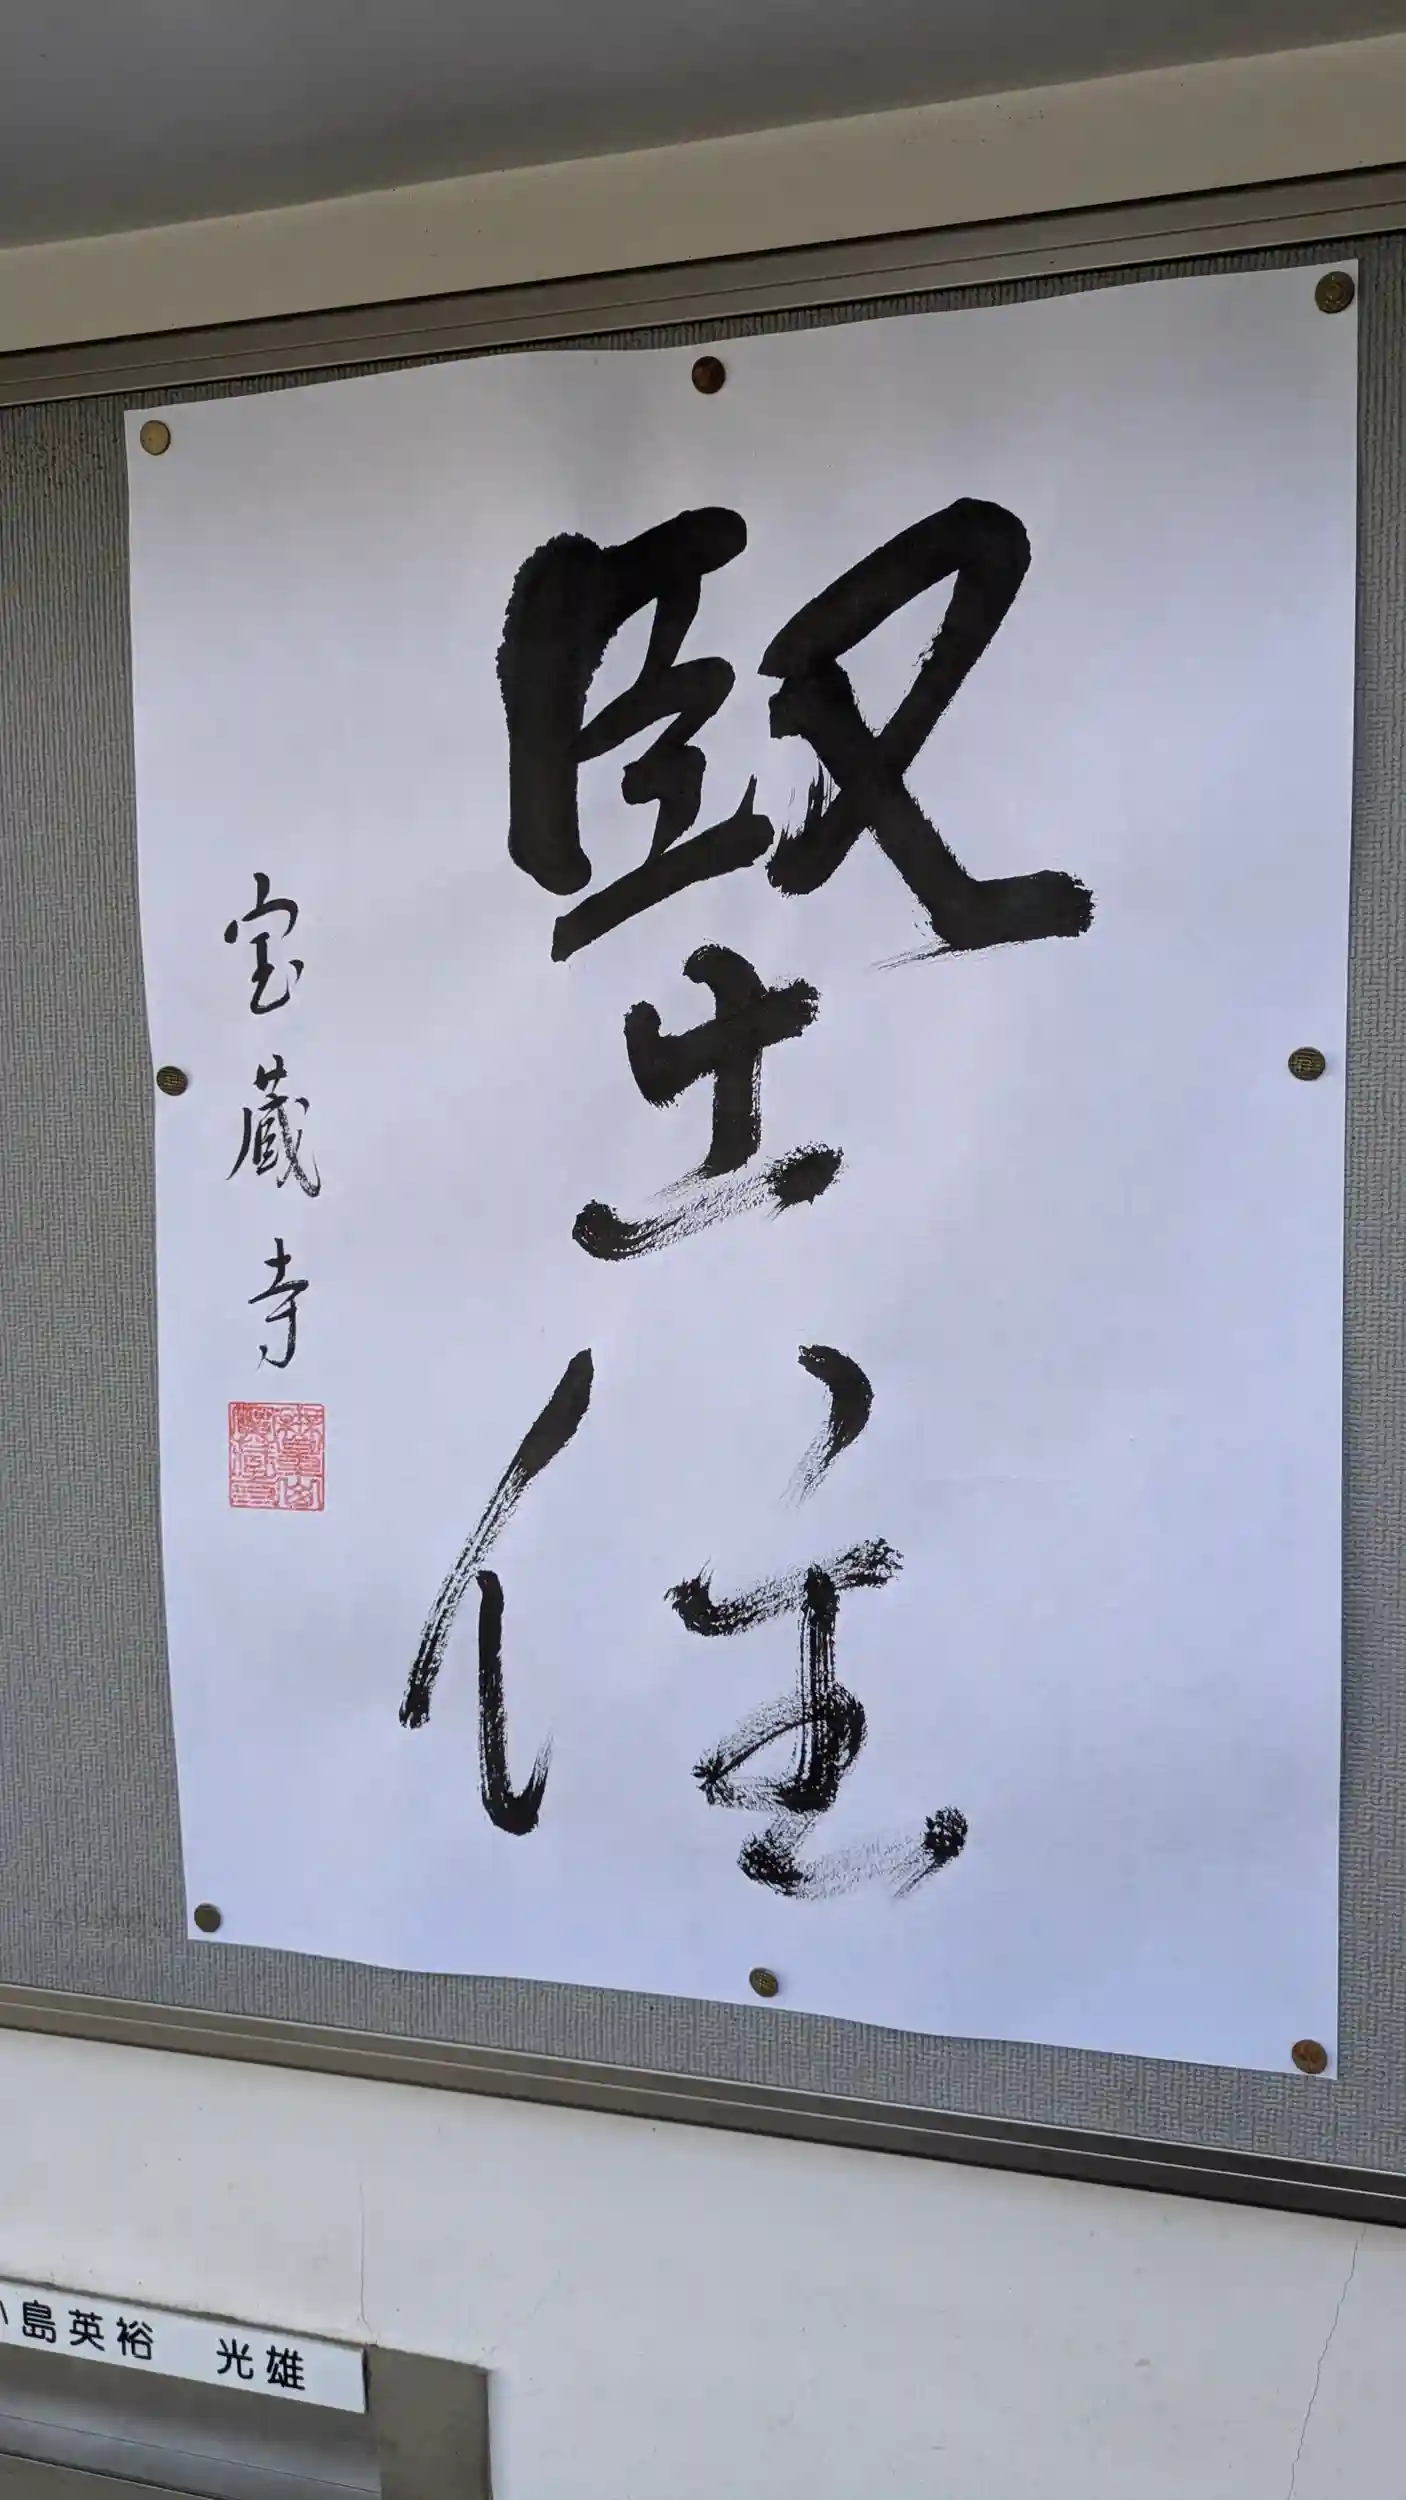 堅住
宝蔵寺
小島英裕 光雄